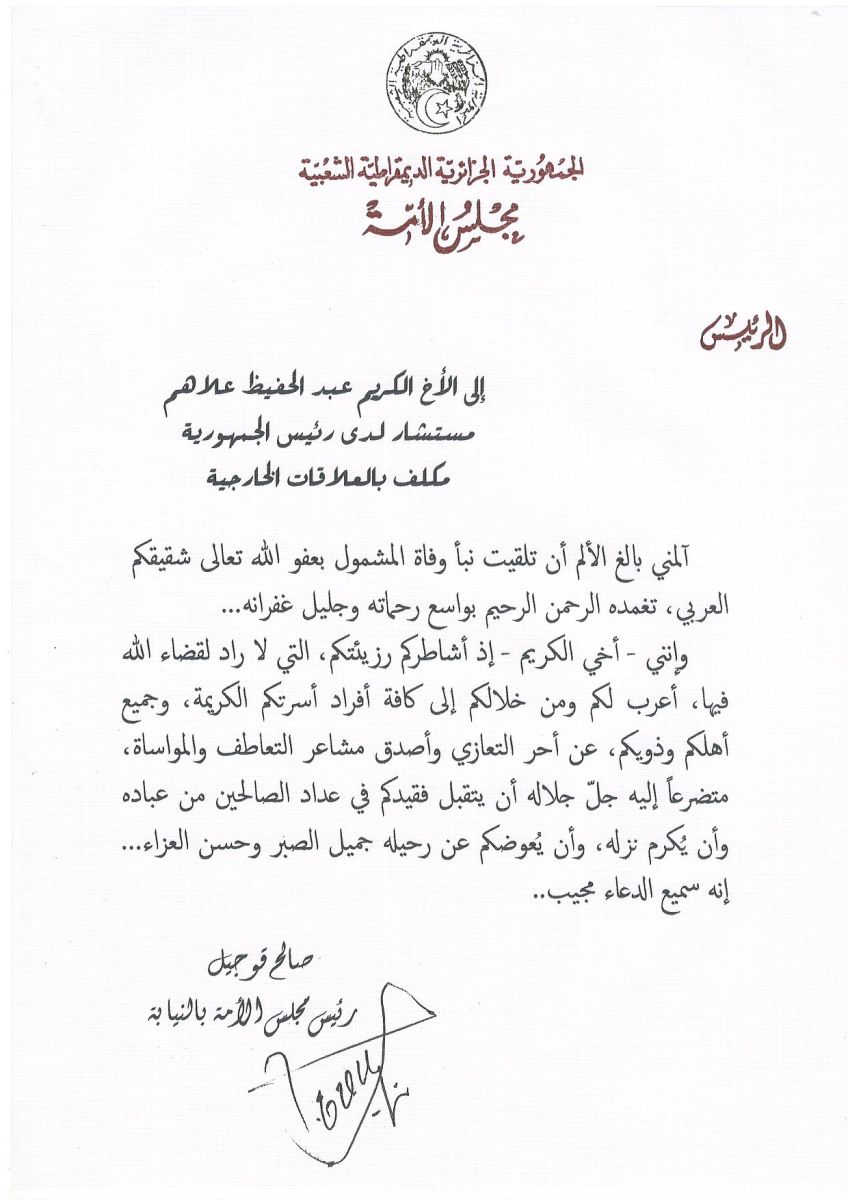 الجمهورية الجزائرية الديمقراطية الشعبية
الجمْهُوريّة الجزائريّة الديمقراطيّة الشعْبيّة
مجْلسُ الأمّة
الرئيس
إلى الأخ الكريم عبد الحفيظ علاهم
مستشار لدى رئيس الجمهورية
مكلف بالعلاقات الخارجية
آلمني بالغ الألم أن تلقيت نبأ وفاة المشمول بعفو الله تعالى شقيقكم
العربي، تغمده الرحمن الرحيم بواسع رحماته وجليل غفرانه...
وإنني - أخي الكريم - إذ أشاطركم رزيئتكم، التي لا راد لقضاء الله
فيها، أعرب لكم ومن خلالكم إلى كافة أفراد أسرتكم الكريمة، وجميع
أهلكم وذويكم، عن أحر التعازي وأصدق مشاعر التعاطف والمواساة،
متضرعاً إليه جلّ جلاله أن يتقبل فقيدكم في عداد الصالحين من عباده
وأن يُكرم نزله، وأن يُعوضكم عن رحيله جميل الصبر وحسن العزاء...
إنه سميع الدعاء مجيب..
صالح قوجيل
رئيس مجلس الأمة بالنيابة